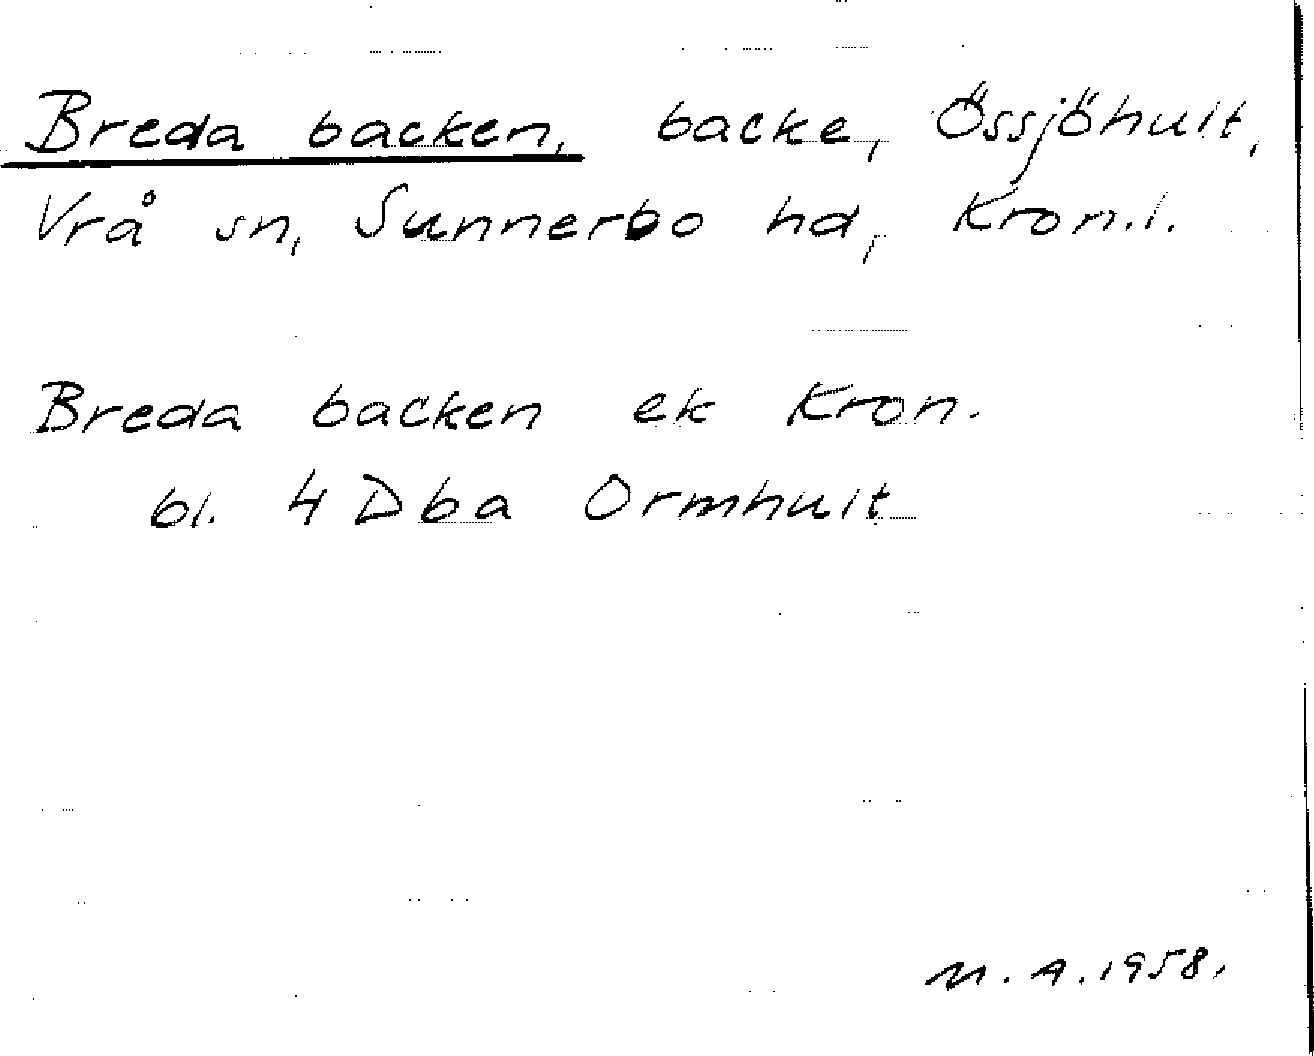 Breda backen, backe, Össjöhult,
Vrå sn, Sunnerbo hd, Kron.l.
Breda backen ek Kron.
bl. 4 D b a Ormhult
M.A.1958.